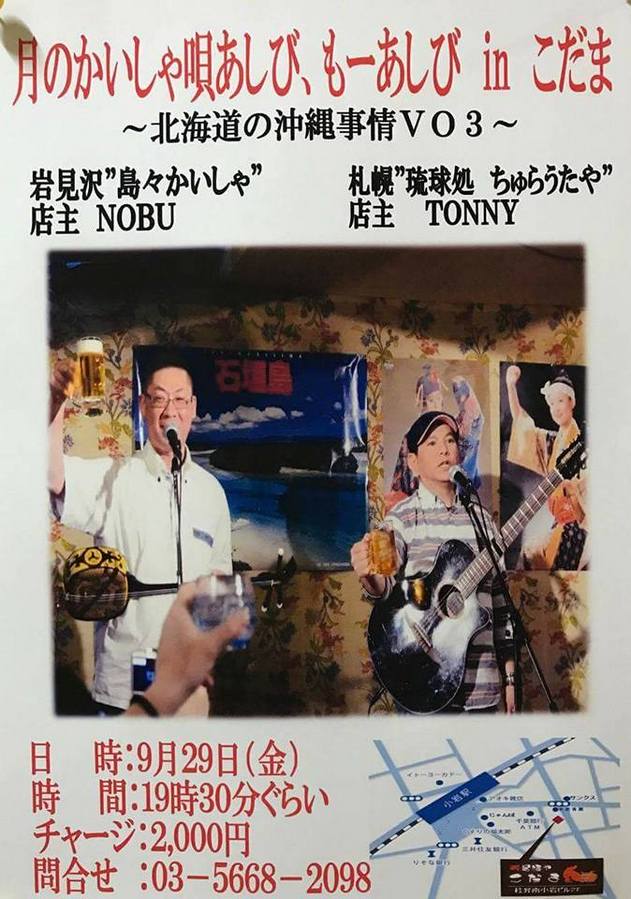 月のかいしゃ唄あしび、もーあしび in こだま
～北海道の沖縄事情VO3～
岩見沢”島々かいしゃ”
店主 NOBU
札幌”琉球処 ちゅらうたや”
店主 TONNY
石垣島
日 時:9月29日(金)
時 間:19時30分ぐらい
チャージ:2,000円
問合せ :03-5668-2098
イトーヨーカドー
小岩駅
サンクス
千葉銀行
ATM
三井住友銀行
りそな銀行
こだま